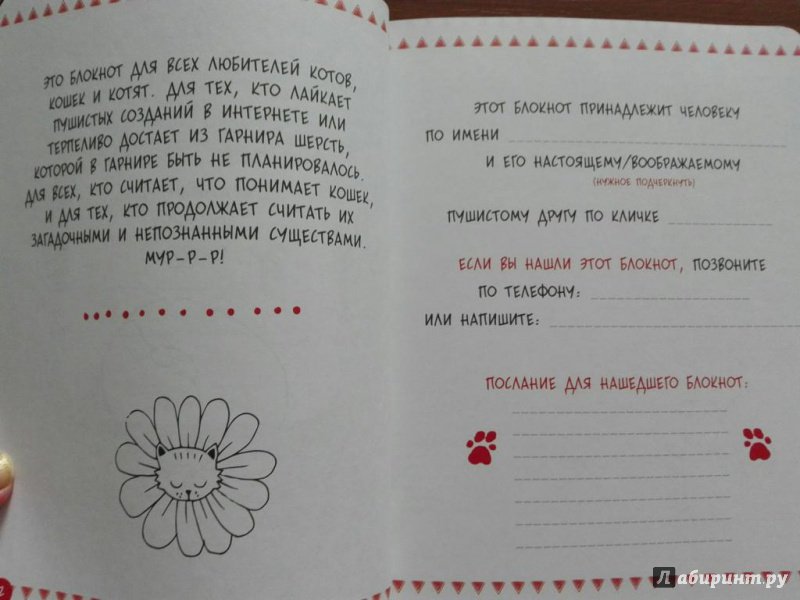 ЭТО БЛОКНОТ ДЛЯ ВСЕХ ЛЮБИТЕЛЕЙ КОТОВ,
КОШЕК И КОТЯТ. ДЛЯ ТЕХ, КТО ЛАЙКАЕТ
ПУШИСТЫХ СОЗДАНИЙ В ИНТЕРНЕТЕ ИЛИ
ТЕРПЕЛИВО ДОСТАЕТ ИЗ ГАРНИРА ШЕРСТЬ,
КОТОРОЙ В ГАРНИРЕ БЫТЬ НЕ ПЛАНИРОВАЛОСЬ.
ДЛЯ ВСЕХ, КТО СЧИТАЕТ, ЧТО ПОНИМАЕТ КОШЕК,
И ДЛЯ ТЕХ, КТО ПРОДОЛЖАЕТ СЧИТАТЬ ИХ
ЗАГАДОЧНЫМИ И НЕПОЗНАННЫМИ СУЩЕСТВАМИ.
МУР-Р-Р!
2
ЭТОТ БЛОКНОТ ПРИНАДЛЕЖИТ ЧЕЛОВЕКУ
ПО ИМЕНИ
И ЕГО НАСТОЯЩЕМУ/ВООБРАЖАЕМОМУ
(НУЖНОЕ ПОДЧЕРКНУТЬ)
ПУШИСТОМУ ДРУГУ ПО КЛИЧКЕ
ЕСЛИ ВЫ НАШЛИ ЭТОТ БЛОКНОТ, ПОЗВОНИТЕ
ПО ТЕЛЕФОНУ:
ИЛИ НАПИШИТЕ:
ПОСЛАНИЕ ДЛЯ НАШЕДШЕГО БЛОКНОТ:
Лабиринт.ру